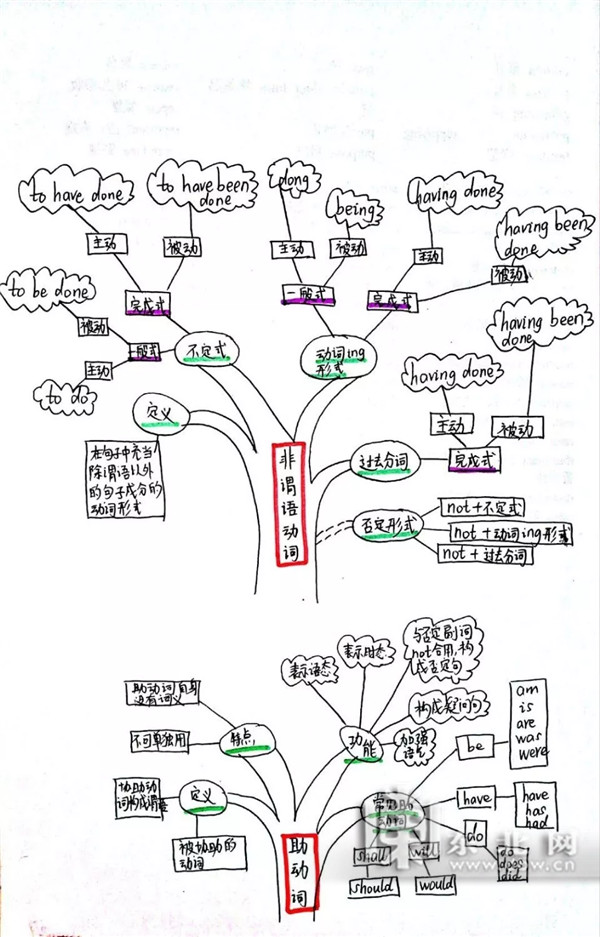 to have done
to have been
done
dong
being
having done
having been
done
主动
被动
主动
被动
主动
被动
to be done
完成式
一般式
完成式
having been
done
被动
一般式
不定式
动词ing
形式
主动
having done
to do
定义
主动
被动
在句子中充当
除谓语以外
的句子成分的
动词形式
非谓语动词
过去分词
完成式
否定形式
not+不定式
not+动词ing形式
not+过去分词
表示语态
表示时态
与否定副词
not合用,构
成否定句
助动词自身
没有词义
构成疑问句
am
is
are
was
were
不可单独用
特点
功能
加强
语气
be
协助动
词构成谓
定义
have
have
has
had
被协助的
动词
助动词
shall
will
do
do
does
did
should
would
东北网